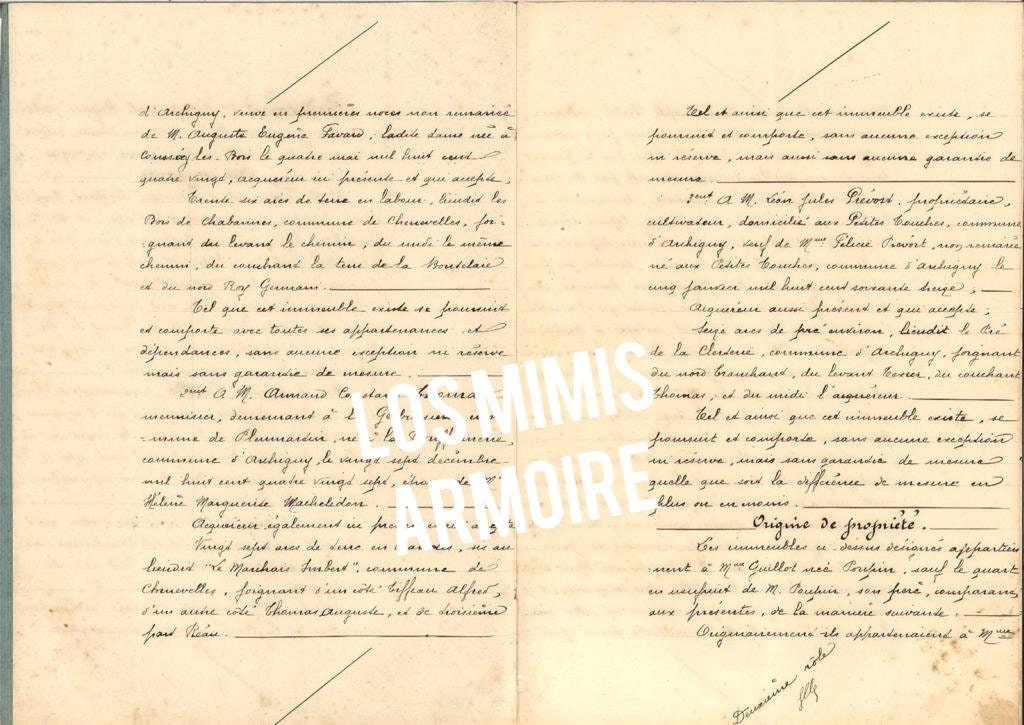 d'Archigny, veuve en premières noces non remariée
de M. Auguste Eugène Favard, ladite dame née à
Coussay les Bois le quatre mai mil huit cent
quatre vingt, acquéreur ici présente et qui accepte ;
Trente six ares de terre en labour, lieudit les
Bois de Chabannes, commune de Chenevelles, joi-
-gnant du levant le chemin, du midi le même
chemin, du couchant la terre de la Boutelaie
et du nord Roy Germain.
Tel que cet immeuble existe se poursuit
et comporte avec toutes ses appartenances et
dépendances, sans aucune exception ni réserve
mais sans garantie de mesure.
2ent A M. Armand Constant Thomas
menuisier, demeurant à la com-
-mune de Pleumartin, né à la
commune d'Archigny, le vingt sept décembre
mil huit cent quatre vingt sept, époux de Me
Hélène Marguerite Machelidon.
Acquéreur également ici présent et qui accepte
Vingt sept ares de terre en sis au
lieudit "Le Marchais Imbert", commune de
Chenevelles, joignant d'un côté Tiffeau Alfred,
d'un autre côté Thomas Auguste, et de troisième
part Réau.
Tel et ainsi que cet immeuble existe, se
poursuit et comporte, sans aucune exception
ni réserve, mais aussi sans aucune garantie de
mesure.
3ent A M. Léon Jules Prévost, propriétaire,
cultivateur, domicilié aux Petites Touches, commune
d'Archigny, veuf de Mme Félicie Prévost, non remarié
né aux Petites Touches, commune d'Archigny le
cinq janvier mil huit cent soixante seize,
Acquéreur aussi présent et qui accepte ;
Seize ares de pré environ, lieudit le Pré
de la Clerserie, commune d'Archigny, joignant
du nord Tranchant, du levant Texier, du couchant
Thomas, et du midi l'acquéreur.
Tel et ainsi que cet immeuble existe, se
poursuit et comporte, sans aucune exception
ni réserve, mais sans garantie de mesure
quelle que soit la différence de mesure en
plus ou en moins.
Origine de propriété.
Les immeubles ci-dessus désignés appartien
nent à Mme Guillot née Poupin, sauf le quart
en usufruit de M. Poupin, son père, comparant
aux présentes, de la manière suivante
Originairement ils appartenaient à Mme
Deuxième rôle
LOS MIMIS
ARMOIRE